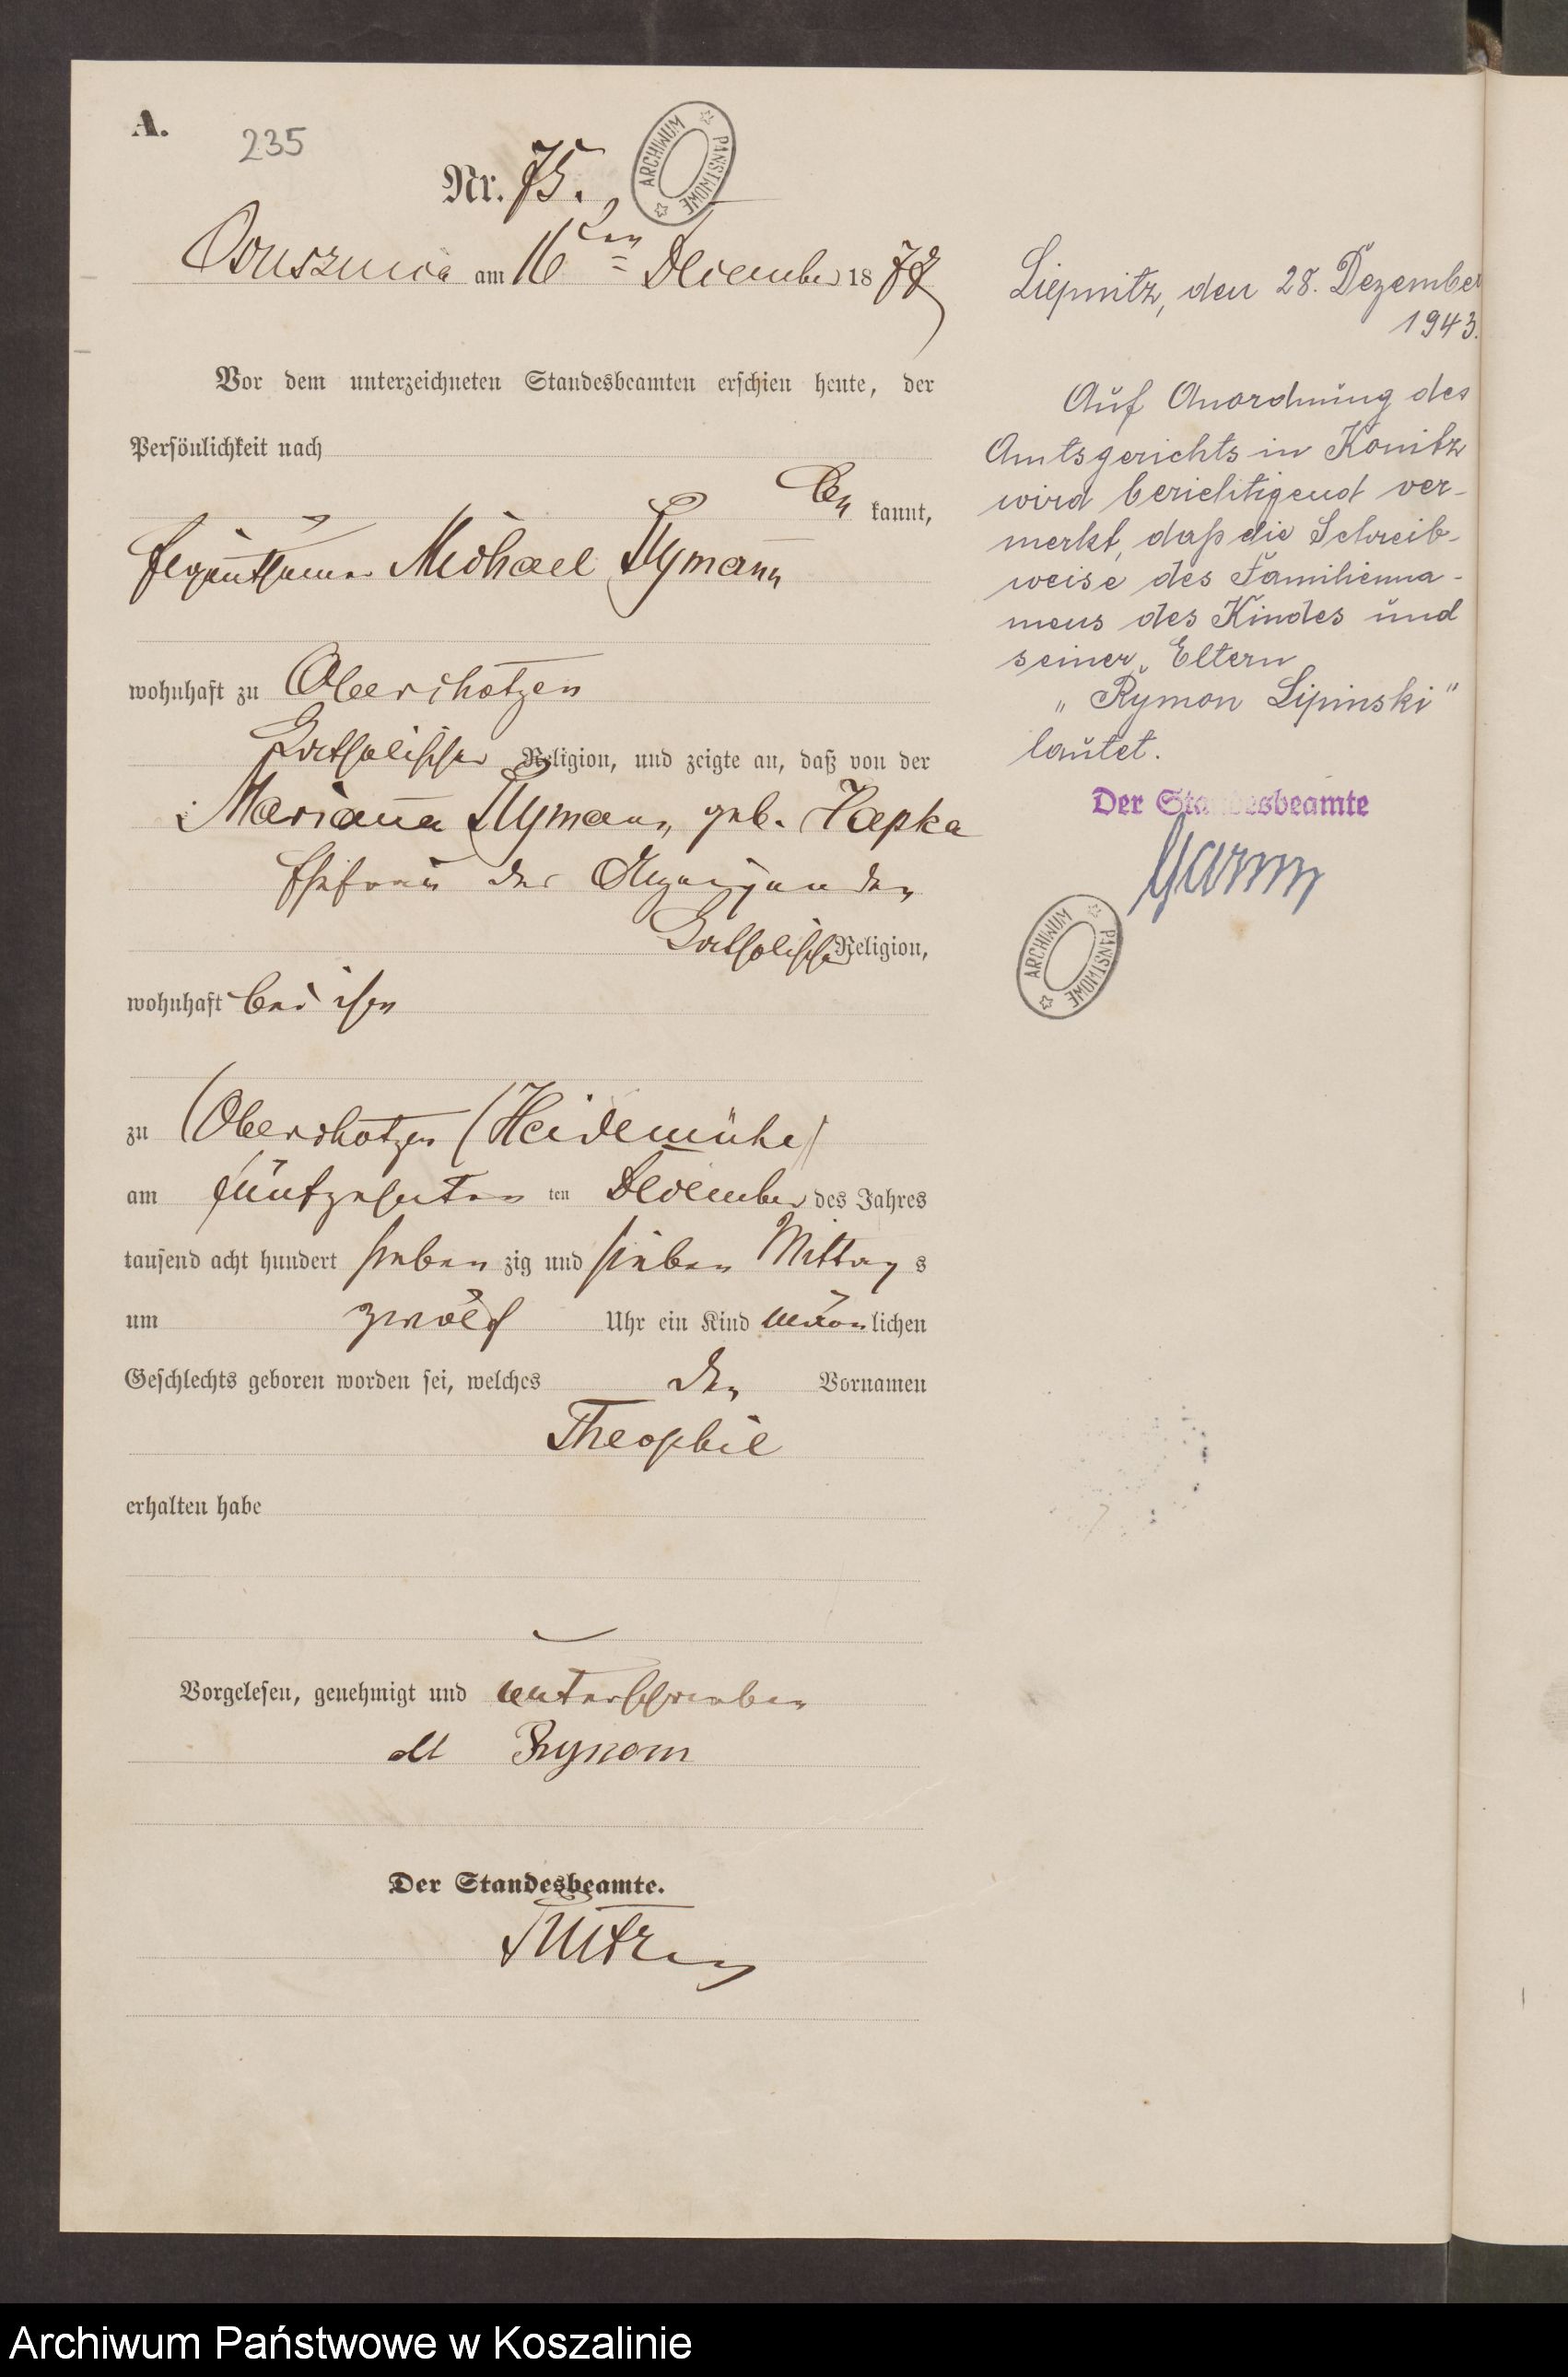 A.
235
Nr. 75.
ARCHIWUM PANSTWOWE
Osuszniça am 16ten December 1877
Vor dem unterzeichneten Standesbeamten erschien heute, der
Persönlichkeit nach
be kannt,
Eigenthümer Michael Rymann
wohnhaft zu Oberschotzen
katholischer Religion, und zeigte an, daß von der
Marianna Rymann geb. Hapka
Ehefrau des Anzeigenden
katholischer Religion,
wohnhaft bei ihm
zu Oberschotzen (Heidemühe)
am fünfzehnten ten December des Jahres
tausend acht hundert sieben zig und sieben Mittag s
um zwölf Uhr ein Kind männ lichen
Geschlechts geboren worden sei, welches den Vornamen
Theophil
erhalten habe
Vorgelesen, genehmigt und unterschrieben
M Rymon
Der Standesbeamte.
Liepnitz, den 28. Dezember
1943.
Auf Anordnung des
Amtsgerichts in Konitz
wird berichtigend ver-
merkt, daß die Schreib-
weise des Familienna-
mens des Kindes und
seiner Eltern
„Rymon Lipinski"
lautet.
Der Standesbeamte
ARCHIWUM PANSTWOWE
Archiwum Państwowe w Koszalinie